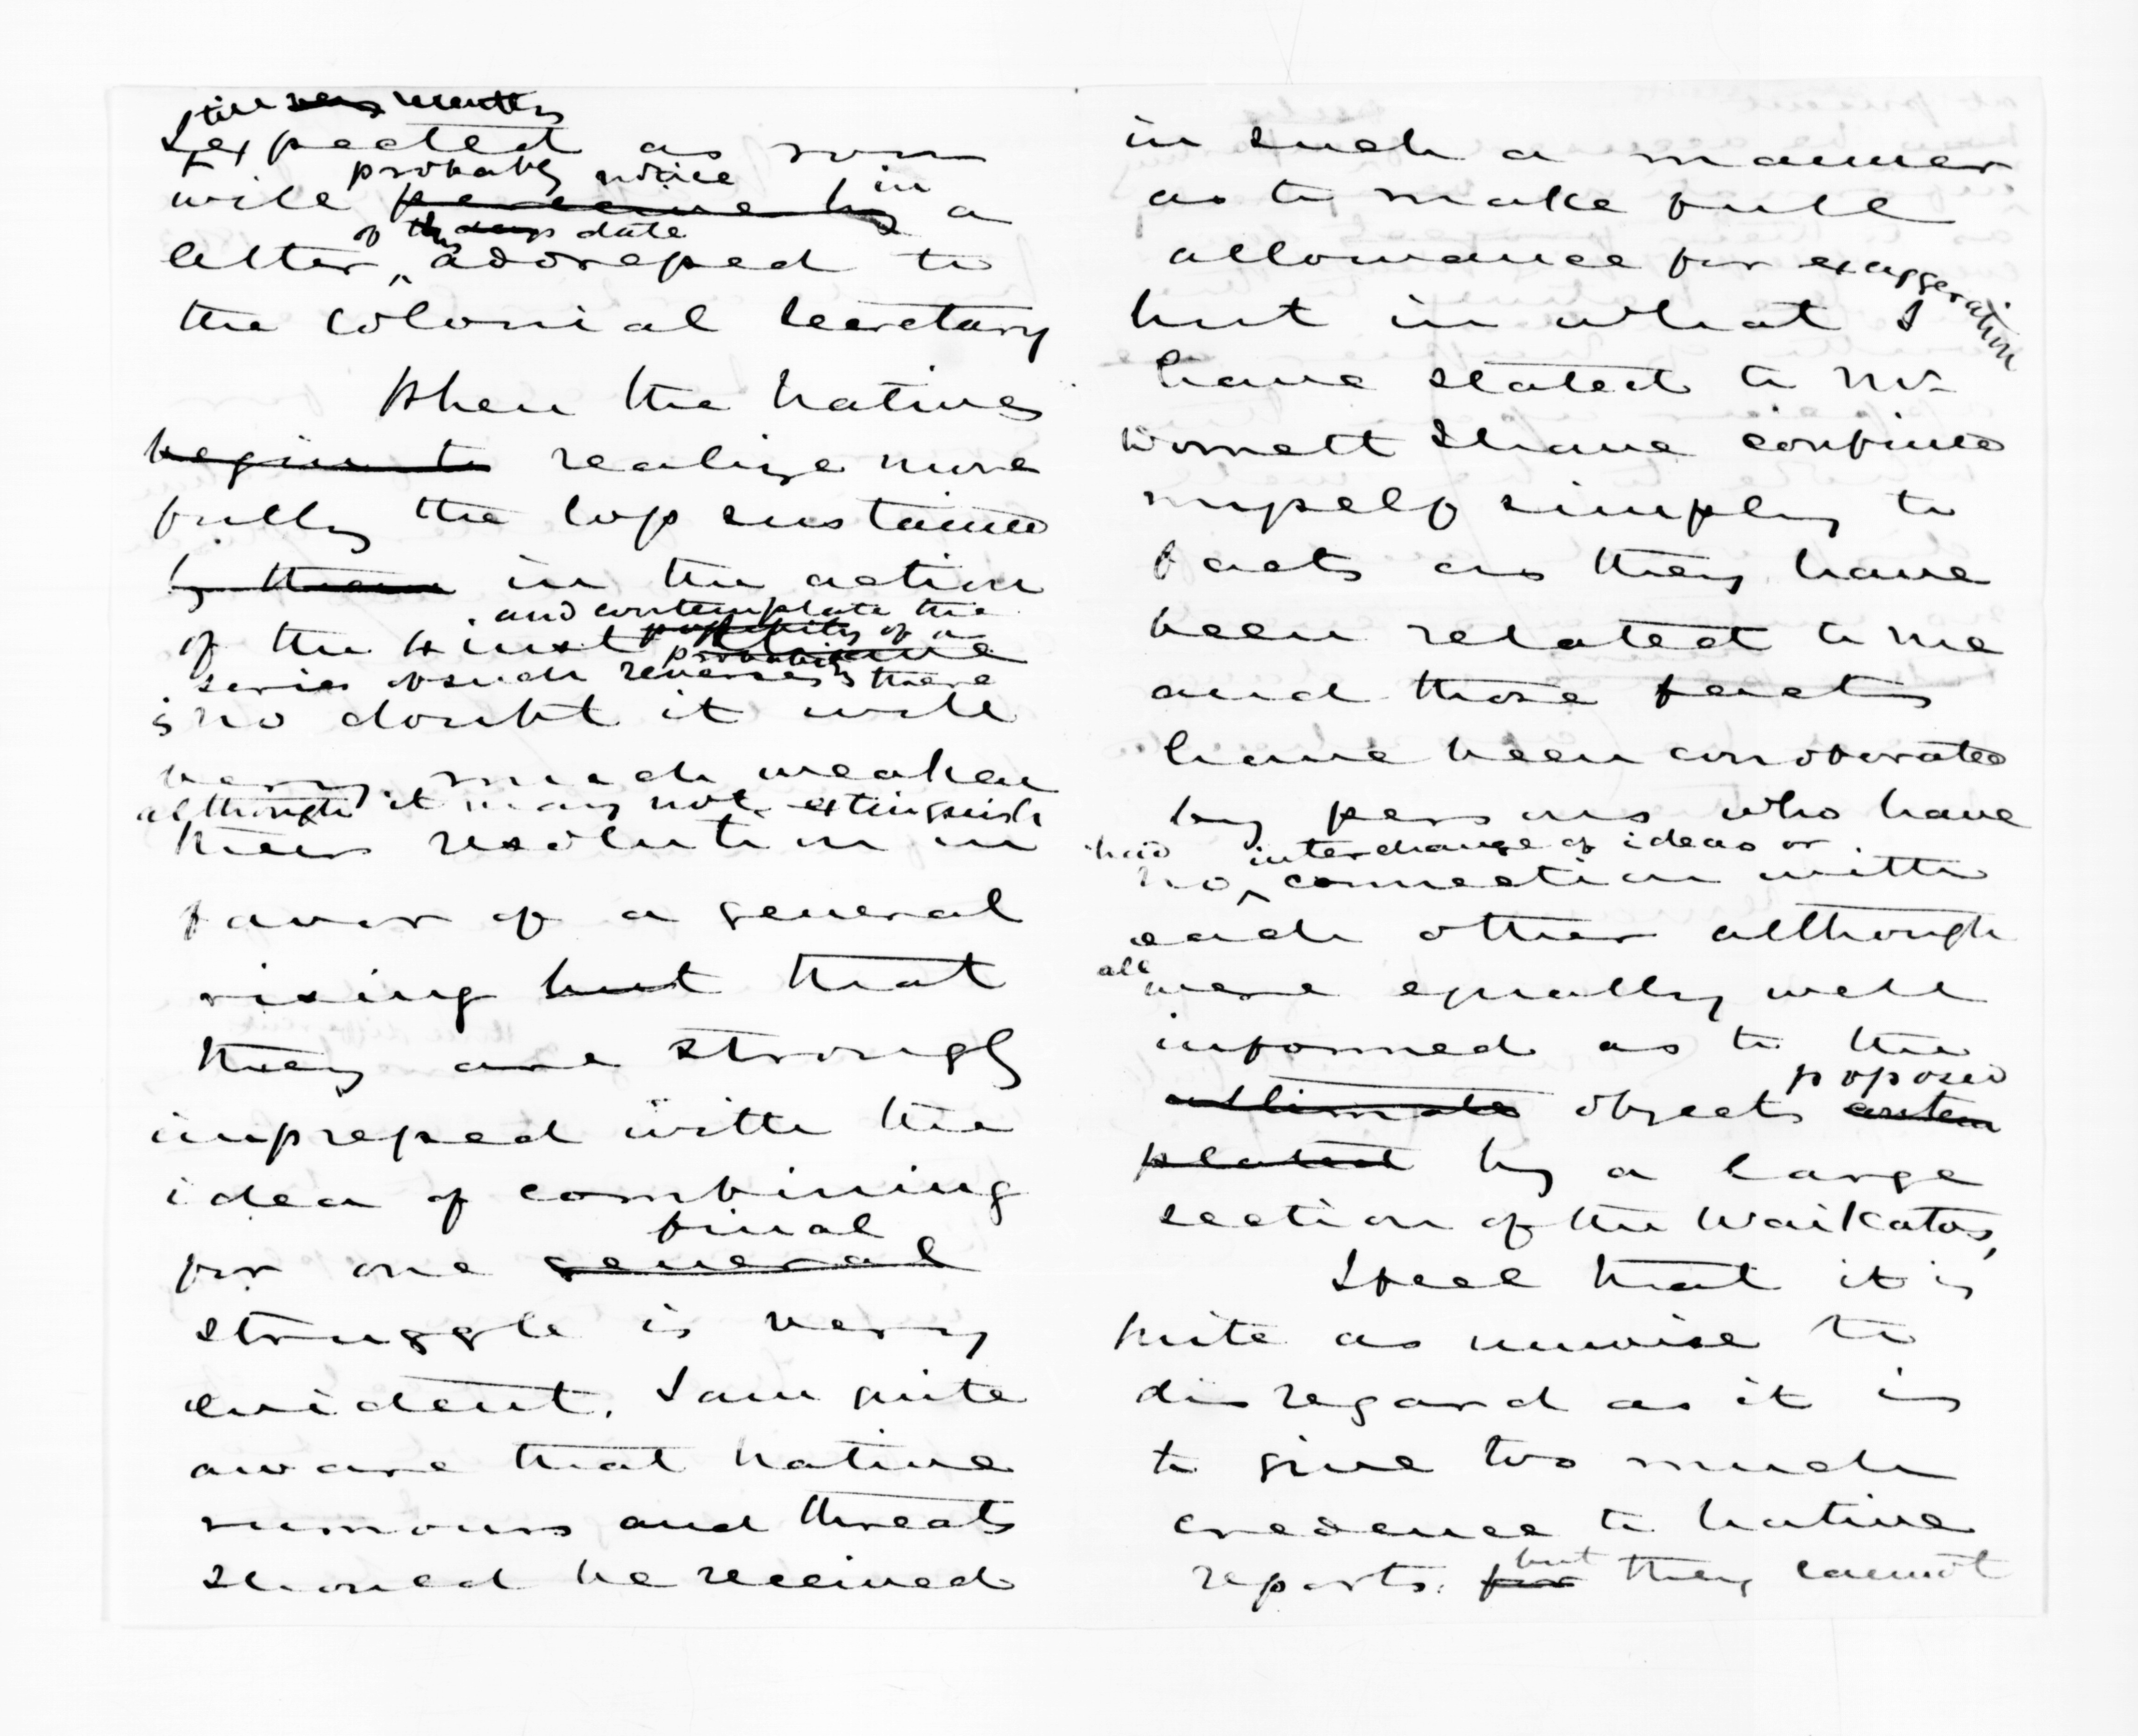 till months
I expected as you
probably notice in
will perceive by a
of this days date
letter, addressed to
the Colonial Secretary
When the Natives
begin to realize more
fully the loss sustained
by them in the action
and contemplate the
possibility of a
of the
probability
series of such reverses there
is no doubt it will
very much weaken
although it may not extinguish
their resolution in
favor of a general
rising but that
they are strongly
impressed with the
idea of combining
final
for one general
struggle is very
evident. I am quite
aware that native
rumours and threats
should be received
in such a manner
as to make full
allowance for exaggeration
but in what I
have stated to Mr
I have confined
myself simply to
facts as they have
been related to me
and those facts
have been corroborated
by persons who have
had interchange of ideas or
no connection with
each other although
all were equally well
informed as to the
proposed
ultimate objects contem
plated by a large
section of the Waikatos,
I feel that it is
quite as unwise to
disregard as it is
to give too much
credence to native
but
reports. for they cannot